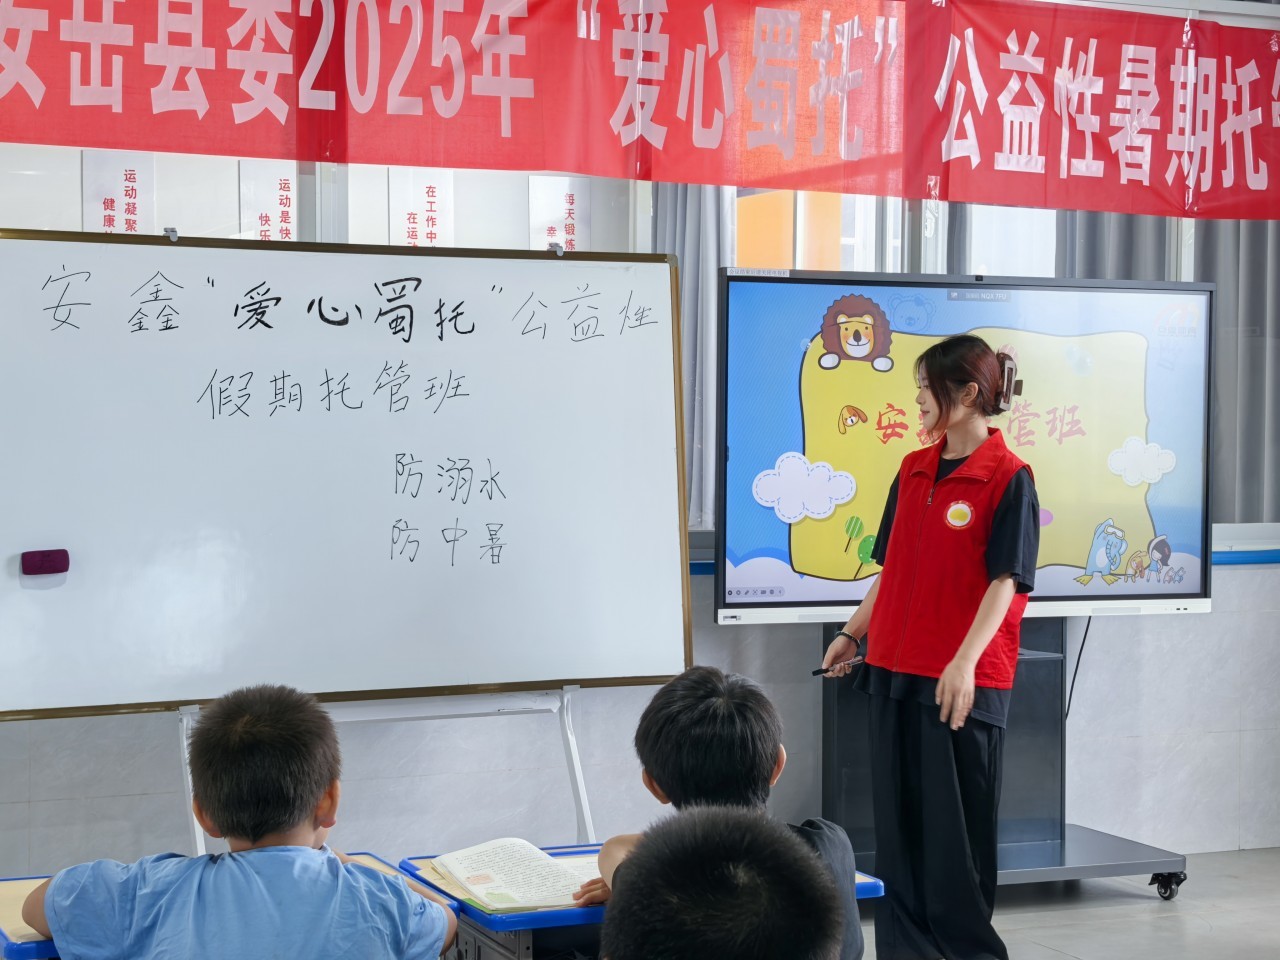 安岳县委2025年“爱心蜀托”公益性暑期托
运动凝聚
健康
运动是快
快乐
在工作中
在运动
每天锻炼
幸
安鑫“爱心蜀托”公益性
假期托管班
防溺水
防中暑
安 管班